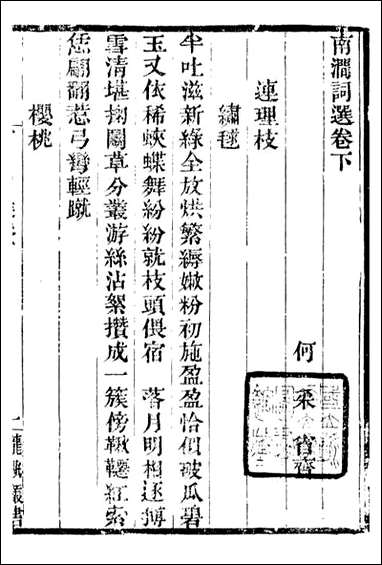 南澗詞選卷下
何
采
省齋
連理枝
繡毬
半吐滋新綠全放烘繁縟嫩粉初施盈盈恰似破瓜碧
玉又依稀蛺蝶舞紛紛就枝頭偎宿　落月明相逐摶
雪清堪掬鬭草分叢游絲沾絮攢成一簇傍鞦韆紅索
恁翩翻惹弓彎輕蹴
櫻桃
叢書